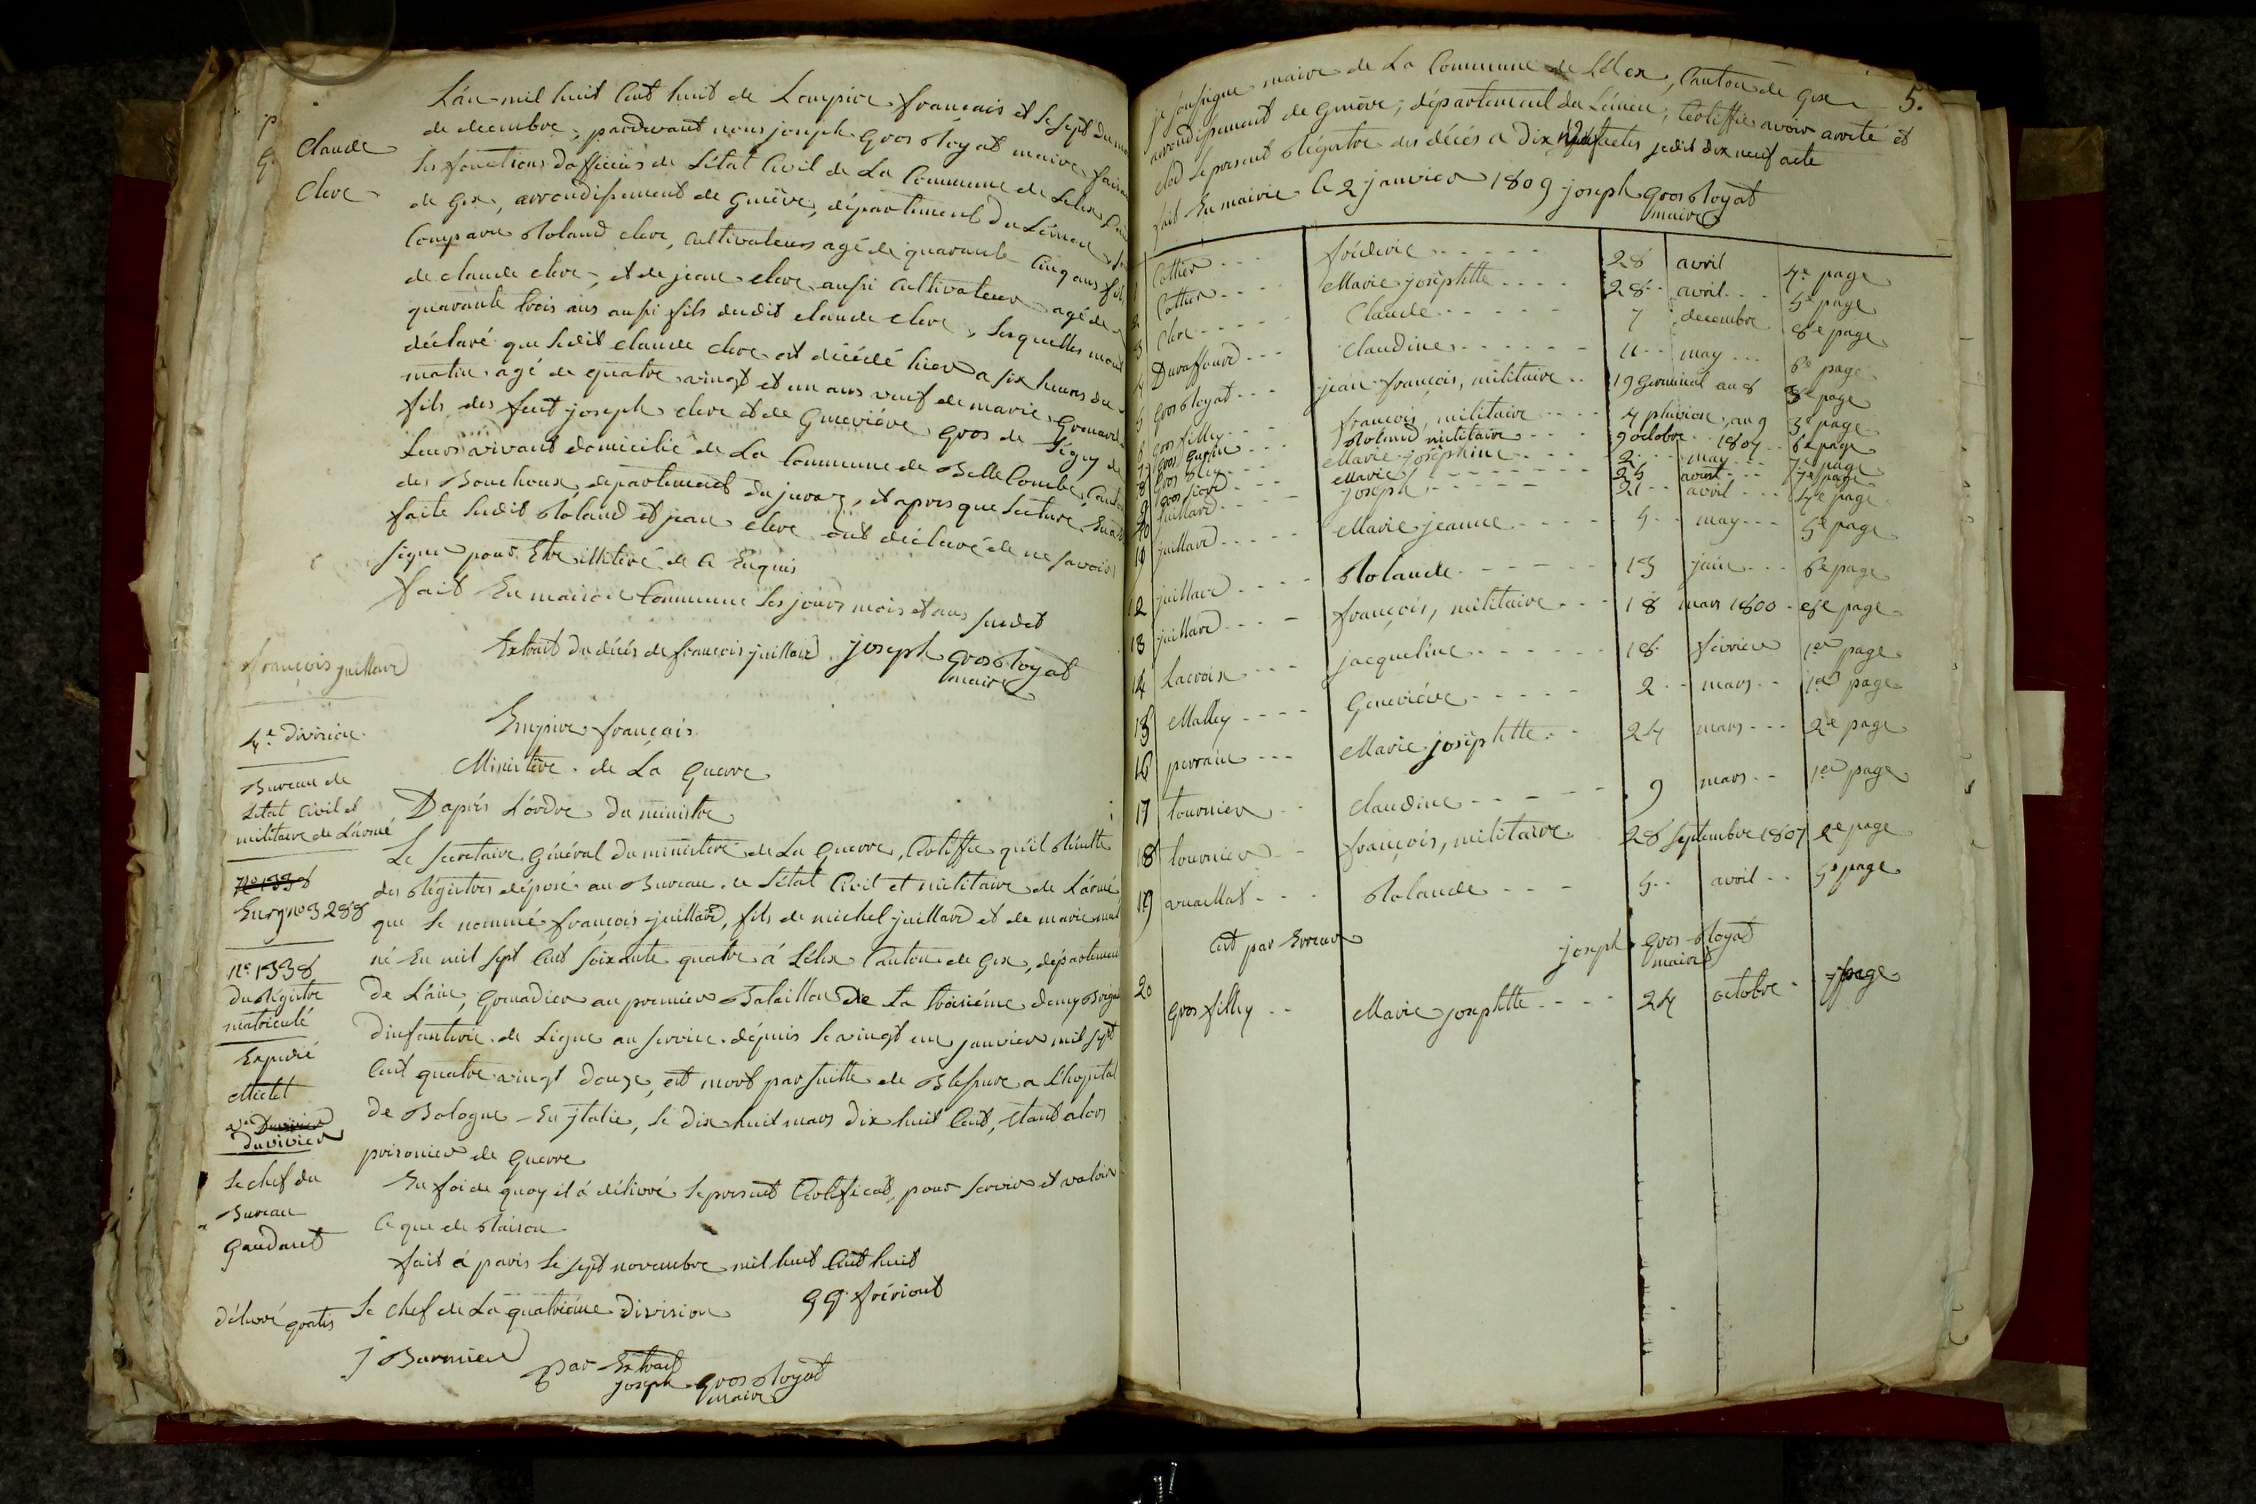 L'an mil huit Cent huit de Lempire français et le sept du
de decembre, pardevant nous joseph Gros Royat maire faisan
Claude
Les fonctions d'officier de L'état Civil de La Commune de Lelex
Clerc
de Gex, arrondissement de Genève, département du Léman
Comparu Roland clerc, cultivateur agé de quarante Cinq ans fils
de claude clerc, et de jean clerc aussi cultivateur agé de
quarante trois ans aussi fils dudit claude clerc, Lesquelles mont
déclaré que Ledit claude clerc est décédé hier a six heures du
matin agé de quatre vingt et un ans veuf de marie
fils des feut joseph clerc et de Genevieve Gros de
Leurs vivant domicilié de La Commune de BelleCombe, Canton
des Bouchoux, departement du jura, et apres que Lecture
faite Ledit Roland et jean clerc ont déclaré de ne savoir
signer pour Etre illitéré de ce Enquis
fait En maison Commune Les jours mois et ans susdit
joseph Gros Royat
maire
françois juillard
Extrait du décés de françois juillard
4e Division
Empire français
Ministère de La Guerre
Bureau de
Létat Civil et
militaire de L'armé
Dapres L'ordre du ministre
Le Secretaire Général du ministere de La Guerre, Certiffie qu'il Résulte
No 1338
des Régistres déposé au Bureau de L'état Civil et militaire de L'armé
Enrg no 3288
que Le nommé françois juillard, fils de michel juillard et de marie
né En mil sept Cent soixante quatre á Lélex Canton de Gex, département
No 1338
du Régistre
matriculé
de L'ain, Grenadier au premier Bataillon de La troisiéme demy Brigade
d'infanterie de Ligne au service depuis Le vingt un janvier mil sept
Expedié
Cent quatre vingt douze, est mort par suitte de Blessure a L'hopital
Michel
de Bologne En jtalie, Le dix huit mars dix huit Cent, Etant alors
va Duvivier
Duvivier
prisonier de Guerre
Le chef du
Bureau
Gaudaret
En foi de quoy il á délivré Le present Certificat, pour servir et valoir
Ce que de Raison
fait á paris Le sept novembre mil huit Cent huit
délivré gratis
Le chef de La quatriéme Division
j Barnier
par Extrait
joseph Gros Royat
maire
5.
je soussigné maire de La Commune de Lélex, Canton de Gex
arrondissement de Genève, département du Léman, Certiffie avoir arreté et
clos Le present Régistre des décés a dix neuf actes je dit dix neuf acte
fait En mairie Ce 2 janvier 1809 joseph Gros Royat
maire
1 Cottier - - - fréderic - - - 28 avril 4e page
2 Cottier - - - Marie josephtte - - - 28 avril - - 5e page
3 Clerc - - - Claude - - - 7 decembre 8e page
4 Duraffourd - - - Claudine - - - 11 may - - 6e page
5 Gros Royat - - - jean françois, militaire - - 19 Germinal an 8 3e page
6 Gros filley - - - françois, militaire - - - 4 pluviose, an 9 3e page
7 Gros Gurin - - - Roland militaire - - - 9 octobre 1807 6e page
8 Gros - - - Marie josephine - - - 2 may - - 7e page
9 Gros - - - Marie - - - 25 aoust - - 7e page
10 juillard - - joseph - - - 21 avril - - 4e page
11 juillard - - - Marie jeanne - - - 4 may - - 5e page
12 juillard - - - Rolande - - - 13 juin - - 6e page
13 juillard - - - françois, militaire - - - 18 mars 1800 8e page
14 Lacroix - - - jacqueline - - - 18 février 1er page
15 Malley - - - Geneviéve - - - 2 mars - - 1er page
16 perrain - - - Marie josephtte - - 24 mars - - 2e page
17 tournier - - Claudine - - - 9 mars - - 1er page
18 tournier - - françois, militaire 28 septembre 1807 2e page
19 vuaillat - - - Rolande - - - 4 avril - - 5e page
Cest par Erreur
joseph Gros Royat
maire
20 Gros filley - - Marie josephtte - - - 24 octobre - 7 page